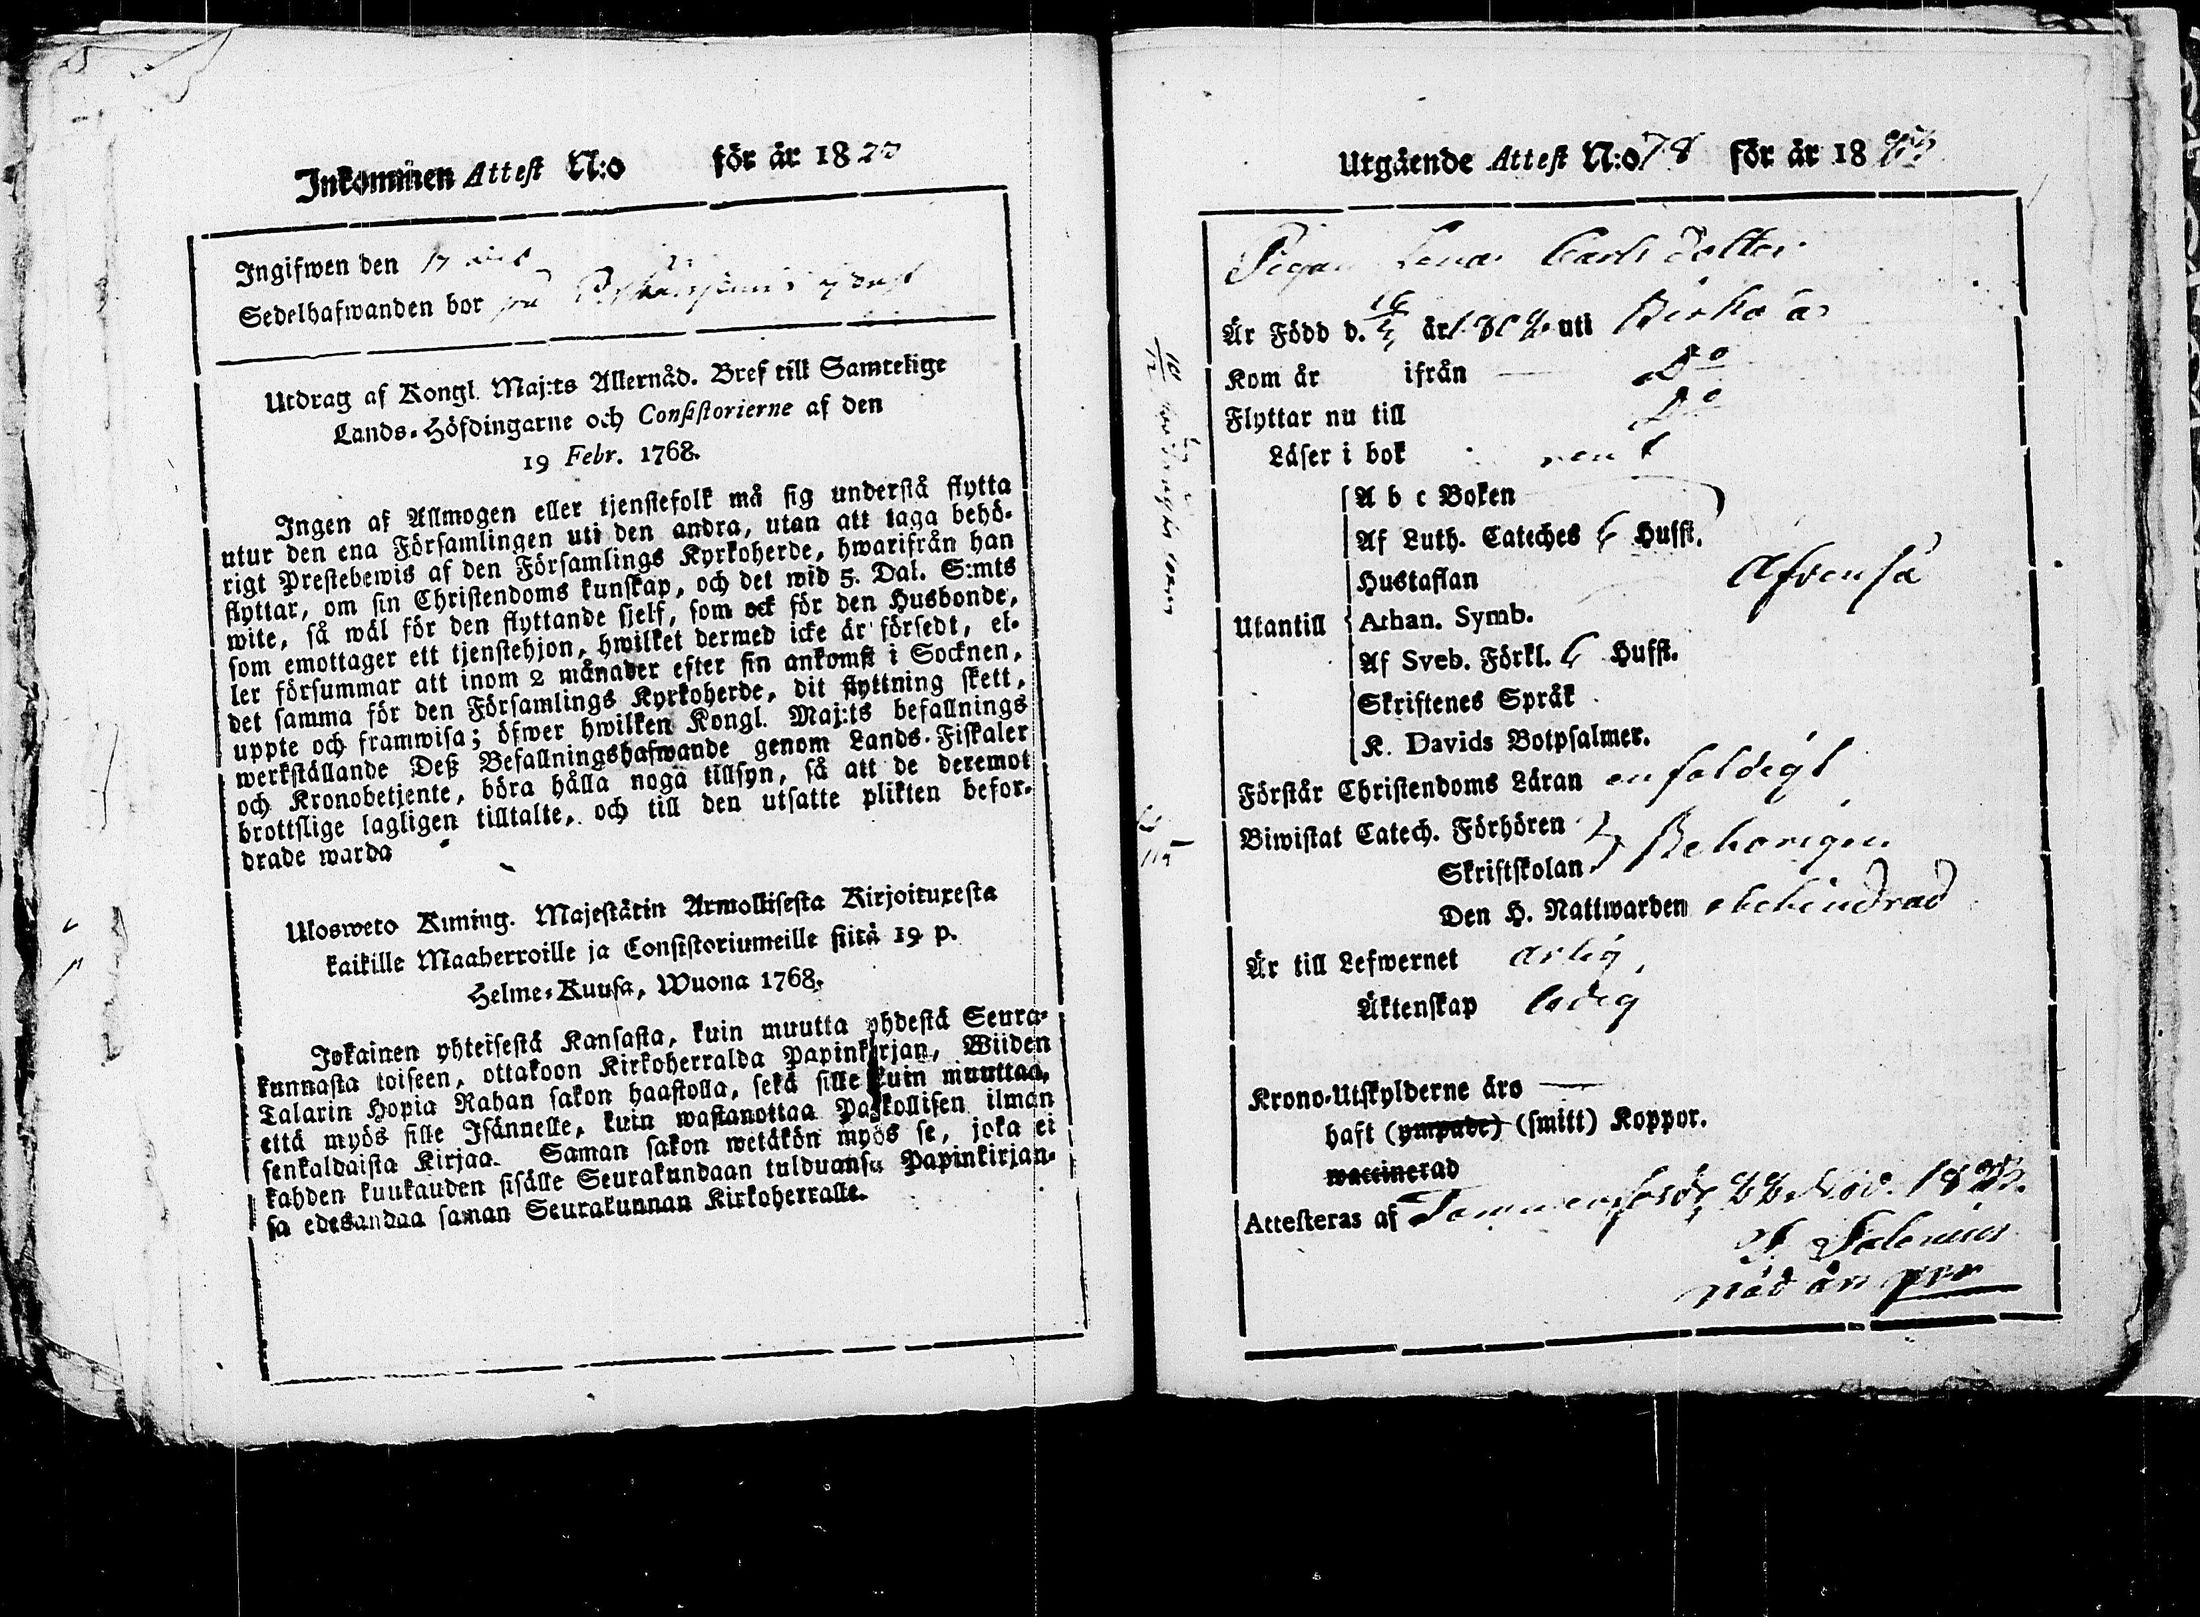 Inkommen Attest N:o för år 18
Ingifwen den 17
Sedelhafwanden bor på
Utdrag af Kongl. Maj:ts Allernåd. Bref till Samtelige
Lands-Höfdingarne och Consistorierne af den
19 Febr. 1768.
Ingen af Allmogen eller tjenstefolk må sig understå flytta
utur den ena Församlingen uti den andra, utan att taga behö-
rigt Prestebewis af den Församlings Kyrkoherde, hwarifrån han
flyttar, om sin Christendoms kunskap, och det wid 5. Dal. S:mts
wite, så wäl för den flyttande sjelf, som ock för den Husbonde,
som emottager ett tjenstehjon, hwilket dermed icke är försedt, el-
ler försummar att inom 2 månader efter sin ankomst i Socknen,
det samma för den Församlings Kyrkoherde, dit flyttning skett,
uppte och framwisa; öfwer hwilken Kongl. Maj:ts befallnings
werkställande Deß Befallningshafwande genom Lands-Fiskaler
och Kronobetjente, böra hålla noga tillsyn, så att de deremot
brottslige lagligen tilltalte, och till den utsatte plikten befor-
drade warda
Ulosweto Kuning. Majestätin Armollisesta Kirjoituxesta
kaikille Maaherroille ja Consistoriumeille siitä 19 p.
Helme-Kuusa, Wuona 1768.
Jokainen yhteisestä Kansasta, kuin muutta yhdestä Seura-
kunnasta toiseen, ottakoon Kirkoherralda Papinkirjan, Wiiden
Talarin Hopia Rahan sakon haastolla, sekä sille kuin muuttaa,
että myös sille Isännelle, kuin wastanottaa Palkollisen ilman
senkaldaista Kirjaa. Saman sakon wetäkön myös se, joka ei
kahden kuukauden sisälle Seurakundaan tulduansa Papinkirjan-
sa edesandaa saman Seurakunnan Kirkoherralle.
Utgående Attest N:o 78 för år 18
Pigan Lena Carlsdotter
Är Född d. 16 år 180 uti Birkoås
Kom år ifrån D:o
Flyttar nu till D:o
Läser i bok rent
A b c Boken
Af Luth. Cateches 6 Hufst.
Hustaflan Äfvenså
Utantill Athan. Symb.
Af Sveb. Förkl. 6 Hufst.
Skriftenes Språk
K. Davids Botpsalmer.
Förstår Christendoms Läran enfaldigt
Biwistat Catech. Förhören
Skriftskolan Behörigen
Den H. Nattwarden obehindrad
Är till Lefwernet ärlig,
Äktenskap ledig
Krono-Utskylderne äro —
haft (ympade) (smitt) Koppor.
waccinerad
Attesteras af Nov. 18